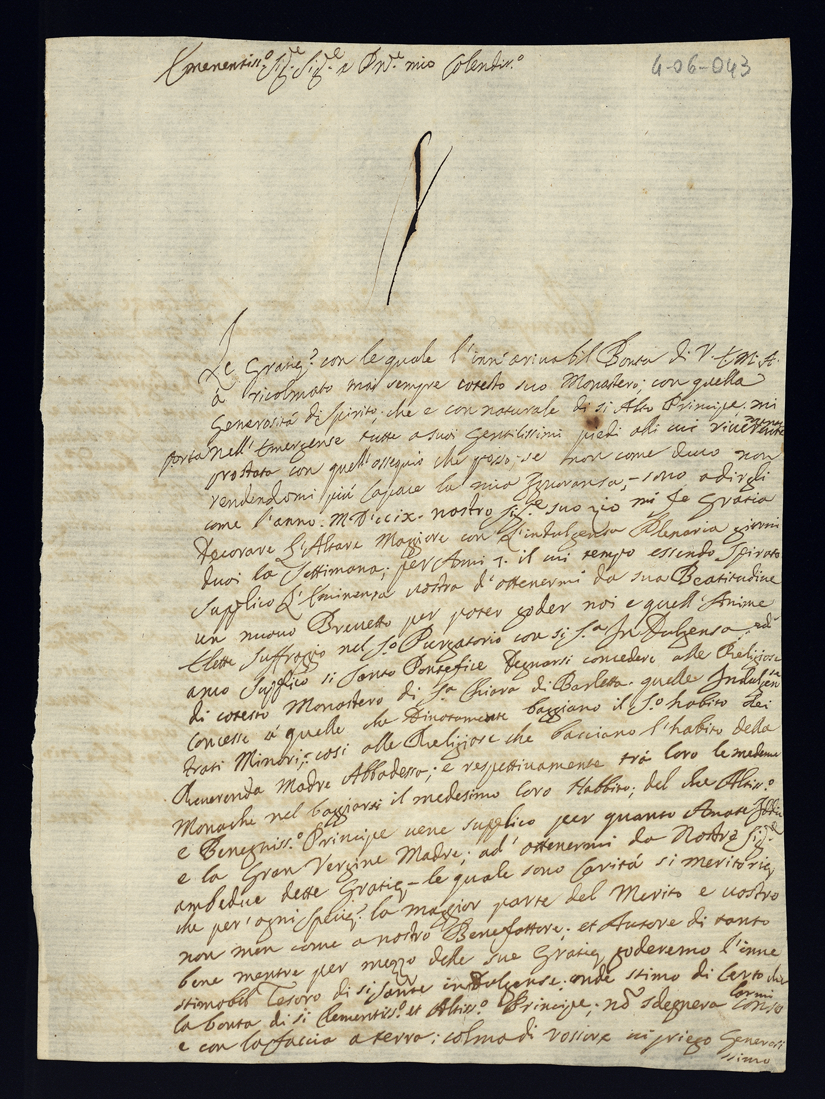 Emenentiss.º Sig.re Sig.re e Pn.e mio Colendiss.º
4-06-043
Le Gratie con le quale l'inn'arivabil Bonta di V. Em. A.
à ricolmato mai sempre cotesto suo Monastero; con quella
Generosità di spirito, che e con naturale di si Alto Principe, mi
porta nell'Emergense tutte a suoi Gentilissimi piedi alli cui riverente
prostata con quell'ossequio che posso, se non come devo non
rendendomi più Capace la mia Ignoransa, sono a dirgli
come l'anno MDCCIX nostro Sig.re suo zio mi fe Gratia
Decorare L'Altare Maggiore con L'indulgensa Plenaria giorni
duoi la Settimana; per Anni 7. il cui tempo essendo Spirato
Supplico L'Eminensa vostra d'ottenermi da sua Beatitudine
un nuovo Brevetto per poter goder noi e quell'Anime
Elette suffragio nel S.º Purgatorio con si S.ª InDulgensa, ed
anco supplico si Santo Pontefice Degnarsi concedere alle Religiose
di cotesto Monastero di S.ª Chiara di Barletta quelle Indulgen
Concesse à quelle che Divotamente baggiano il S.º habito dei
frati Minori; cosi alle Religiose che bacciano l'habito della
Reverenda Madre Abbadessa; e respettivamente trà loro le medeme
Monache nel baggiarsi il medesimo loro Habbito; del che Altiss.º
e Benegniss.º Principe vene supplico per quanto Amate Iddio
e la Gran Vergine Madre; ad'ottenermi da Nostrà Sig.re
ambedue dette Gratie, le quale sono Carità si meritorie,
che per'ogni la maggior parte del Merito e vostro
non men come a nostro Benefattore; et Autore di tanto
bene mentre per mezzo delle sue Gratie, goderemo l'inne
stimobil Tesoro di si Sante inDulgense. onde stimo di Certo che
la bonta di si Clementiss.º et Altiss.º Principe; nõ sdegnera
e con la faccia a terra; colma di rossore vi priego Generosi
ssimo